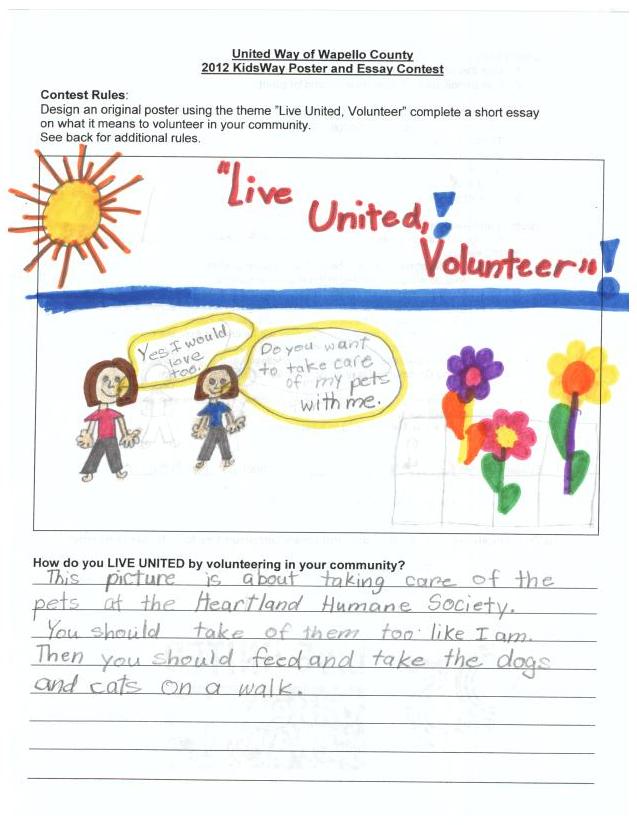 United Way of Wapello County
2012 KidsWay Poster and Essay Contest
Contest Rules:
Design an original poster using the theme "Live United, Volunteer" complete a short essay
on what it means to volunteer in your community.
See back for additional rules.
"Live
United,!
Volunteer"!
Yes I would
love
too.
Do you want
to take care
of my pets
with me.
How do you LIVE UNITED by volunteering in your community?
This picture is about taking care of the
pets at the Heartland Humane Society.
You should take of them too like I am.
Then you should feed and take the dogs
and cats on a walk.